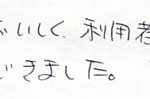 いしく、利用者
きました。